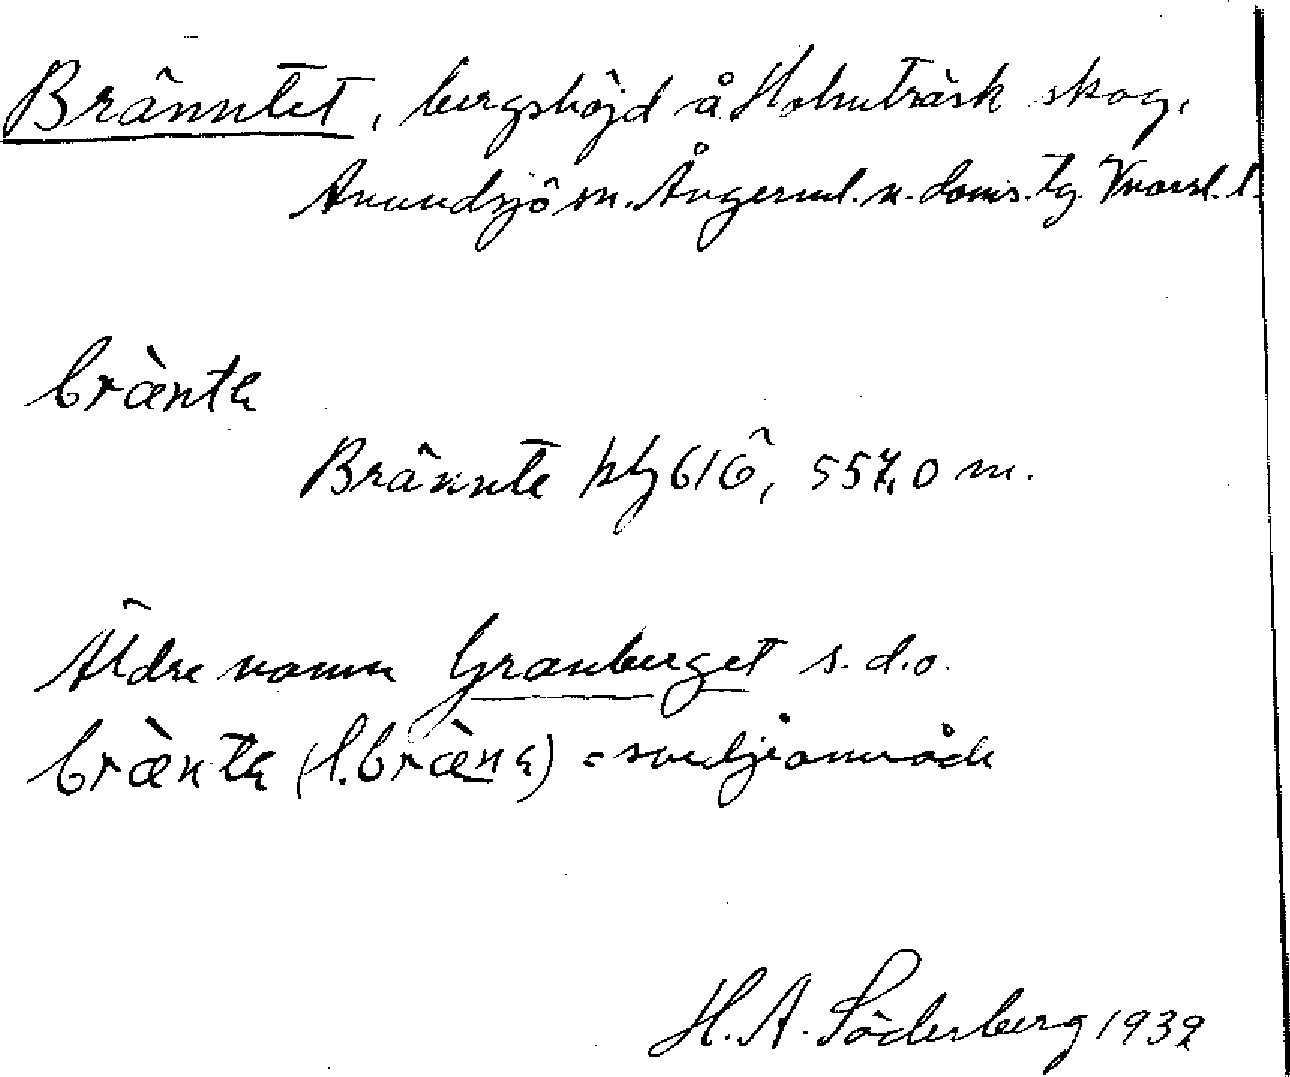 Bränntet, bergshöjd å Holmträsk skog,
Anundsjö sn. Ångerml. n. doms. tg. Vnorrl. l.
brànta
Brännte hg 616, 557,0 m.
Äldre namn Granberget s. d. o.
bræ̀nta (f. bræ̀na) = svedjeområde
H. A. Söderberg 1939